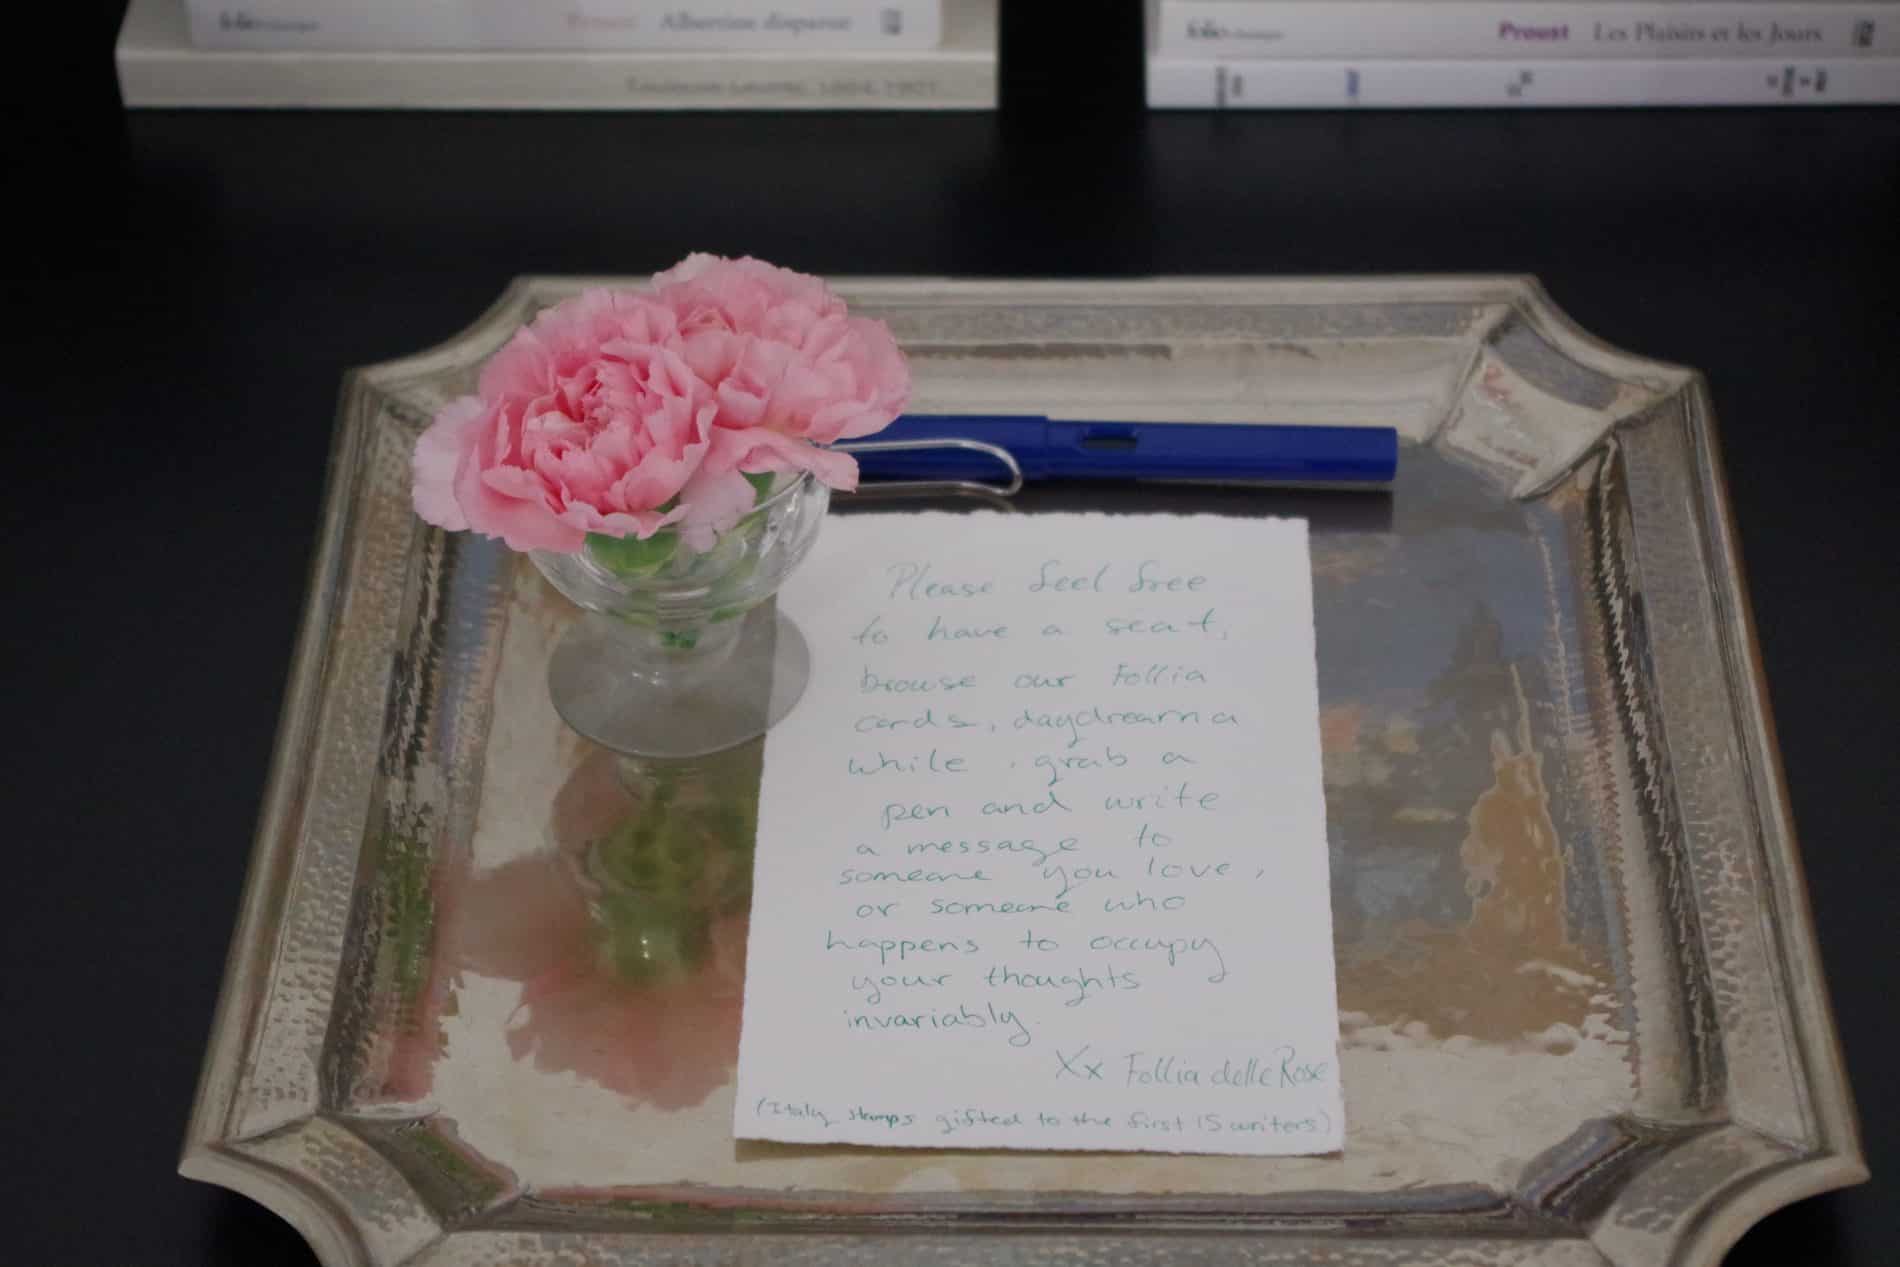 folio
Proust Albertine disparue
folio classique
Proust Les Plaisirs et les Jours
Please feel free
to have a seat,
browse our Follia
cards, daydream a
while, grab a
pen and write
a message to
someone you love,
or someone who
happens to occupy
your thoughts
invariably.
Xx Follia delle Rose
(Italy stamps gifted to the first 15 writers)